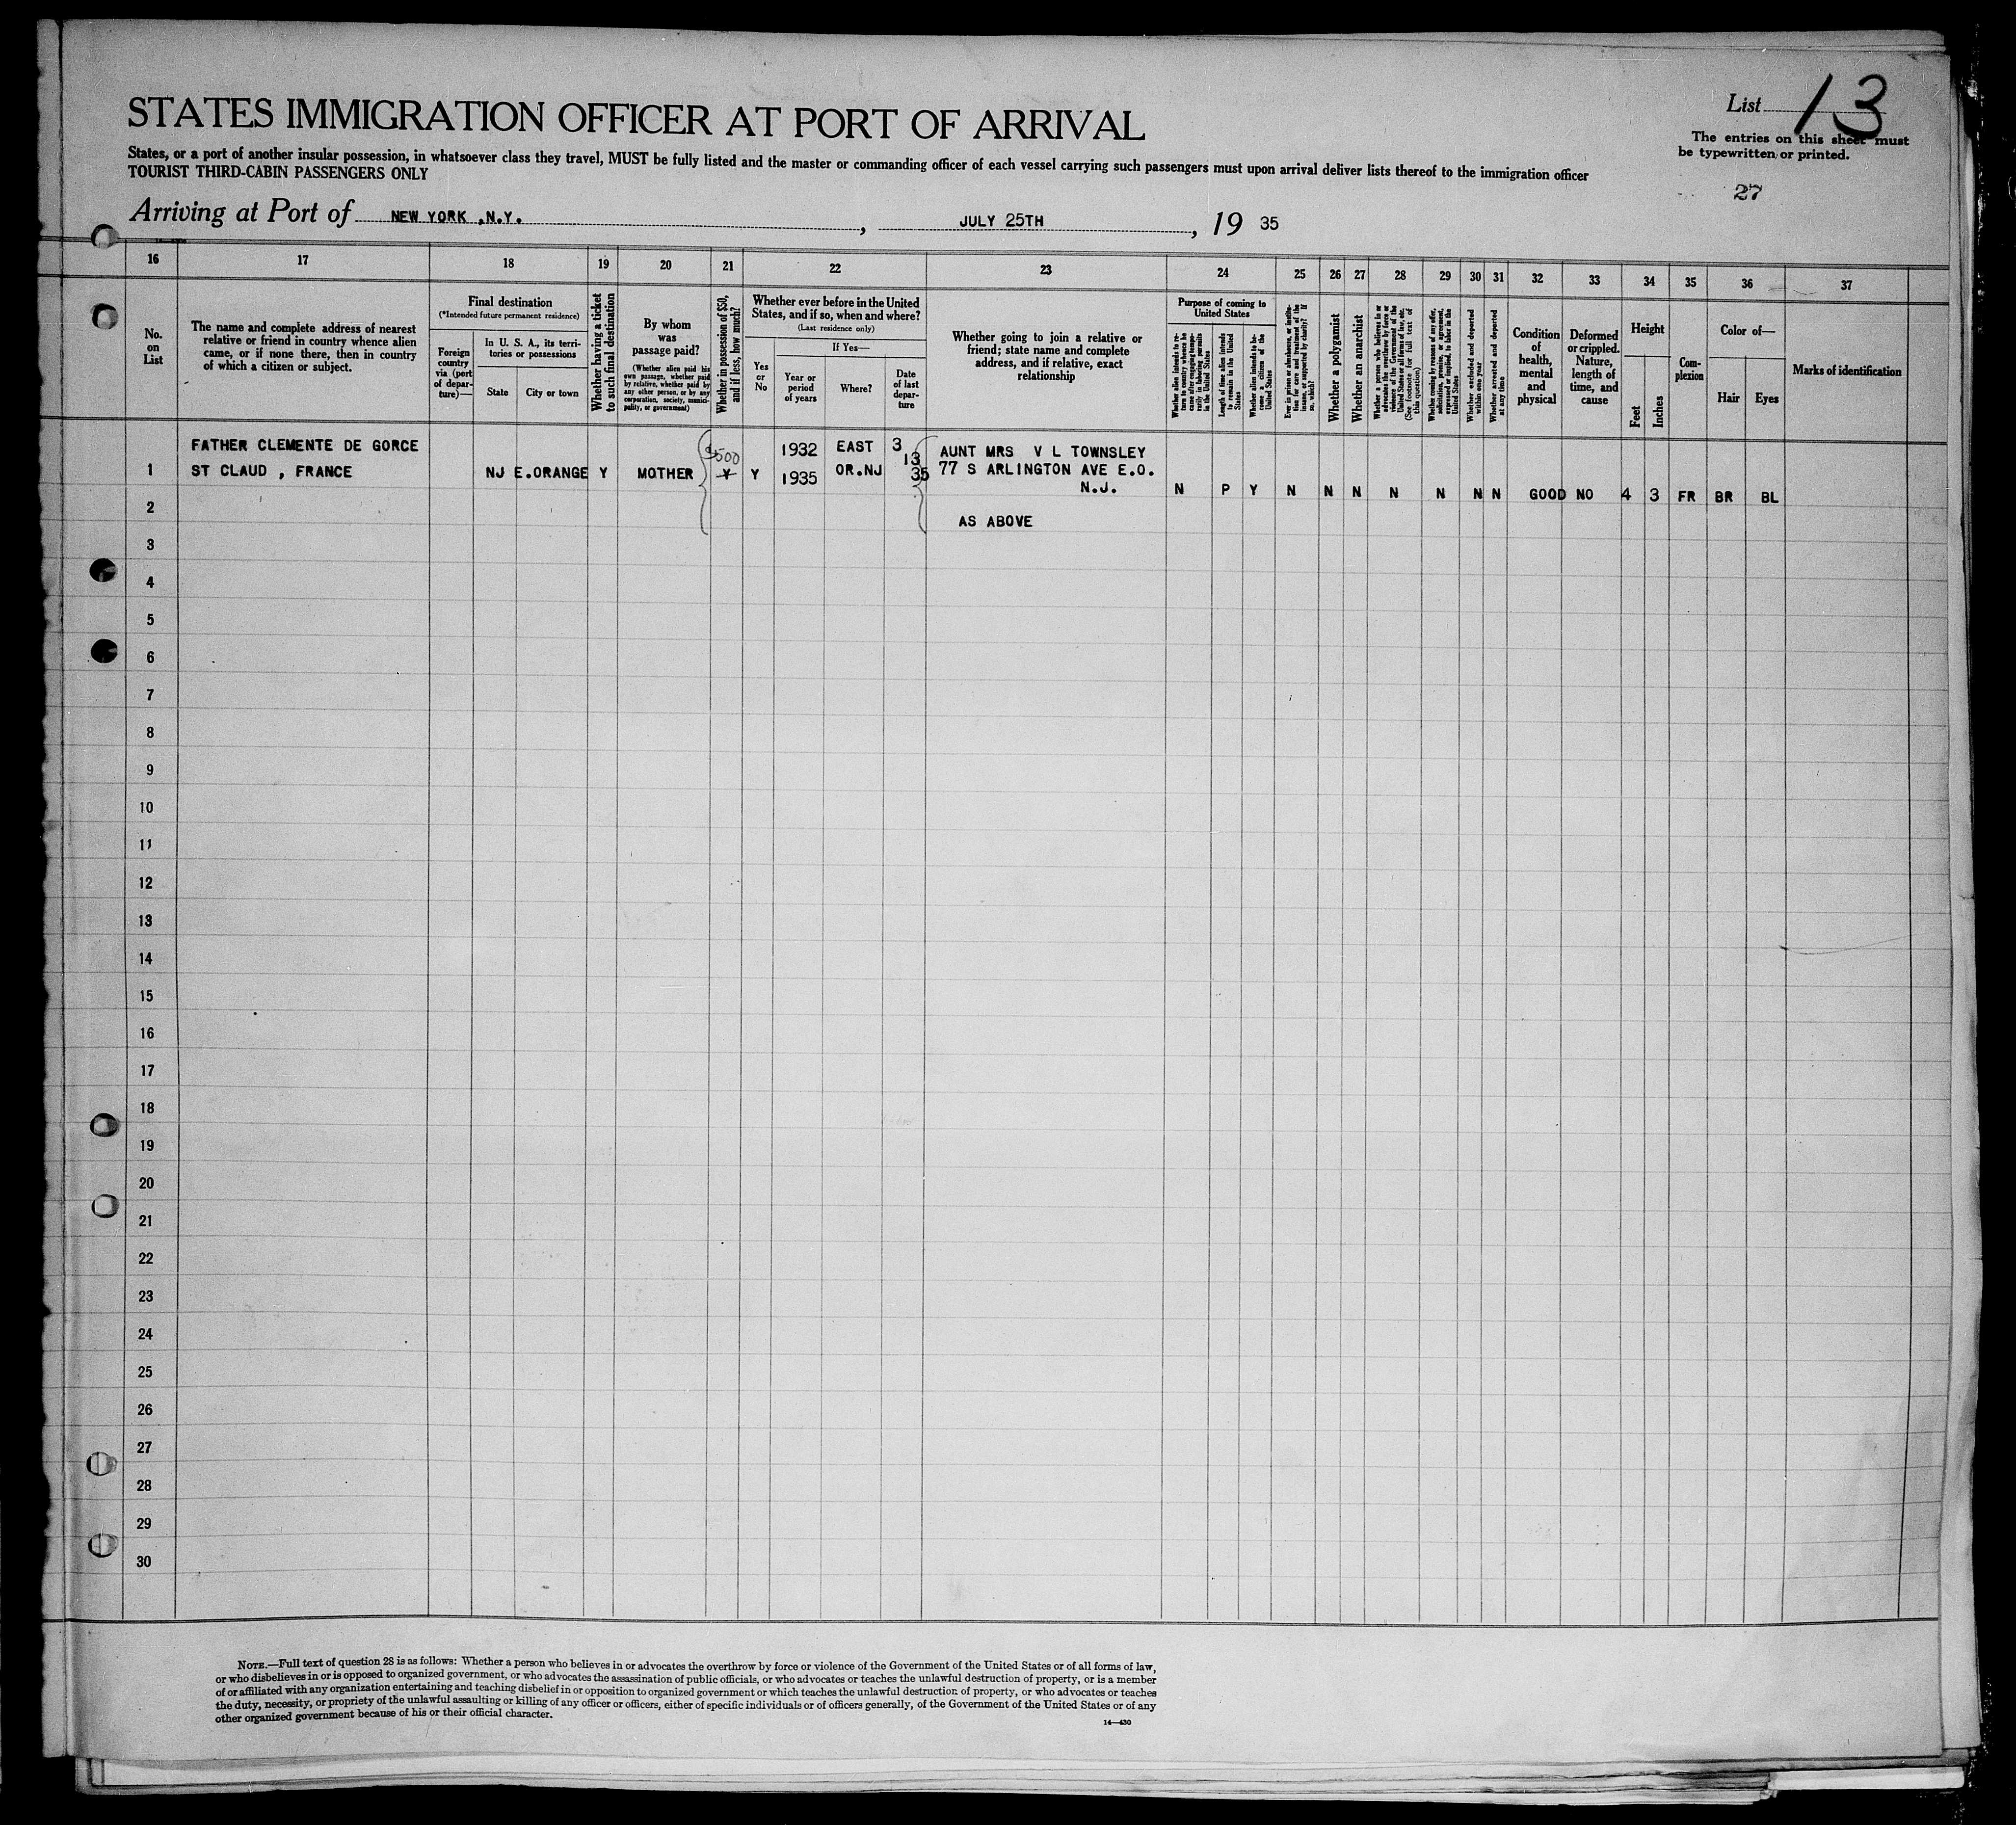 STATES IMMIGRATION OFFICER AT PORT OF ARRIVAL
List 13
The entries on this sheet must
be typewritten or printed.
States, or a port of another insular possession, in whatsoever class they travel, MUST be fully listed and the master or commanding officer of each vessel carrying such passengers must upon arrival deliver lists thereof to the immigration officer
TOURIST THIRD-CABIN PASSENGERS ONLY
27
Arriving at Port of NEW YORK ,N.Y. , JULY 25TH , 19 35
16 17 18 19 20 21 22 23 24 25 26 27 28 29 30 31 32 33 34 35 36 37
No.
on
List
The name and complete address of nearest
relative or friend in country whence alien
came, or if none there, then in country
of which a citizen or subject.
Final destination
(*Intended future permanent residence)
Foreign
country
via (port
of depar-
ture)—
In U. S. A., its terri-
tories or possessions
State
City or town
Whether having a ticket
to such final destination
By whom
was
passage paid?
(Whether alien paid his
own passage, whether paid
by relative, whether paid by
any other person, or by any
corporation, society, munici-
pality, or government)
Whether in possession of $50,
and if less, how much?
Whether ever before in the United
States, and if so, when and where?
(Last residence only)
Yes
or
No
If Yes—
Year or
period
of years
Where?
Date
of last
depar-
ture
Whether going to join a relative or
friend; state name and complete
address, and if relative, exact
relationship
Purpose of coming to
United States
Whether alien intends to re-
turn to country whence he
came after engaging tempo-
rarily in laboring pursuits
in the United States
Length of time alien intends
to remain in the United
States
Whether alien intends to be-
come a citizen of the
United States
Ever in prison or almshouse, or institu-
tion for care and treatment of the
insane, or supported by charity? If
so, which?
Whether a polygamist
Whether an anarchist
Whether a person who believes in or
advocates the overthrow by force or
violence of the Government of the
United States or all forms of law, etc.
(See footnote for full text of
this question)
Whether coming by reason of any offer,
solicitation, promise, or agreement,
expressed or implied, to labor in the
United States
Whether excluded and deported
within one year
Whether arrested and deported
at any time
Condition
of
health,
mental
and
physical
Deformed
or crippled.
Nature,
length of
time, and
cause
Height
Feet
Inches
Com-
plexion
Color of—
Hair
Eyes
Marks of identification
FATHER CLEMENTE DE GORCE $500 1932 EAST 3 AUNT MRS V L TOWNSLEY
1 ST CLAUD , FRANCE NJ E.ORANGE Y MOTHER Y Y 1935 OR.NJ 13 35 77 S ARLINGTON AVE E.O.
N.J. N P Y N N N N N N N GOOD NO 4 3 FR BR BL
2 AS ABOVE
3
4
5
6
7
8
9
10
11
12
13
14
15
16
17
18
19
20
21
22
23
24
25
26
27
28
29
30
NOTE.—Full text of question 28 is as follows: Whether a person who believes in or advocates the overthrow by force or violence of the Government of the United States or of all forms of law,
or who disbelieves in or is opposed to organized government, or who advocates the assassination of public officials, or who advocates or teaches the unlawful destruction of property, or is a member
of or affiliated with any organization entertaining and teaching disbelief in or opposition to organized government or which teaches the unlawful destruction of property, or who advocates or teaches
the duty, necessity, or propriety of the unlawful assaulting or killing of any officer or officers, either of specific individuals or of officers generally, of the Government of the United States or of any
other organized government because of his or their official character.
14—430